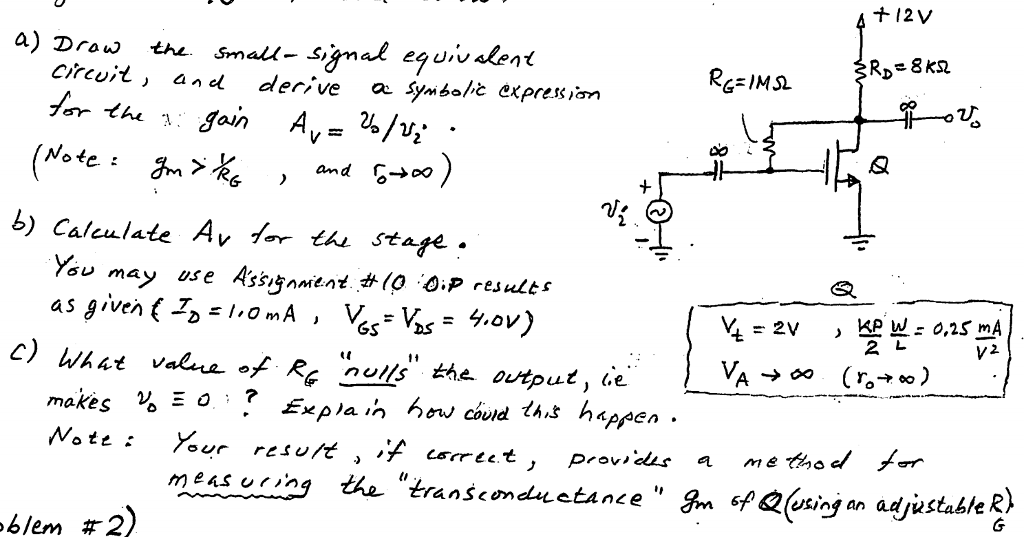 a) Draw the small-signal equivalent
circuit, and derive a symbolic expression
for the gain Av = vo/vi .
(Note: gm > 1/RG , and ro→∞)
b) Calculate Av for the stage.
You may use Assignment #10 O.P results
as given { ID = 1.0 mA , VGS = VDS = 4.0V)
c) What value of RG "nulls" the output, ie
makes vo ≡ 0 ? Explain how could this happen.
Note: Your result, if correct, provides a method for
measuring the "transconductance" gm of Q (using an adjustable RG)
oblem #2)
+12V
RD = 8KΩ
RG=1MΩ
∞
vo
∞
Q
+
vi
-
Q
Vt = 2V , KP/2 W/L = 0.25 mA/V2
VA → ∞ (ro→∞)